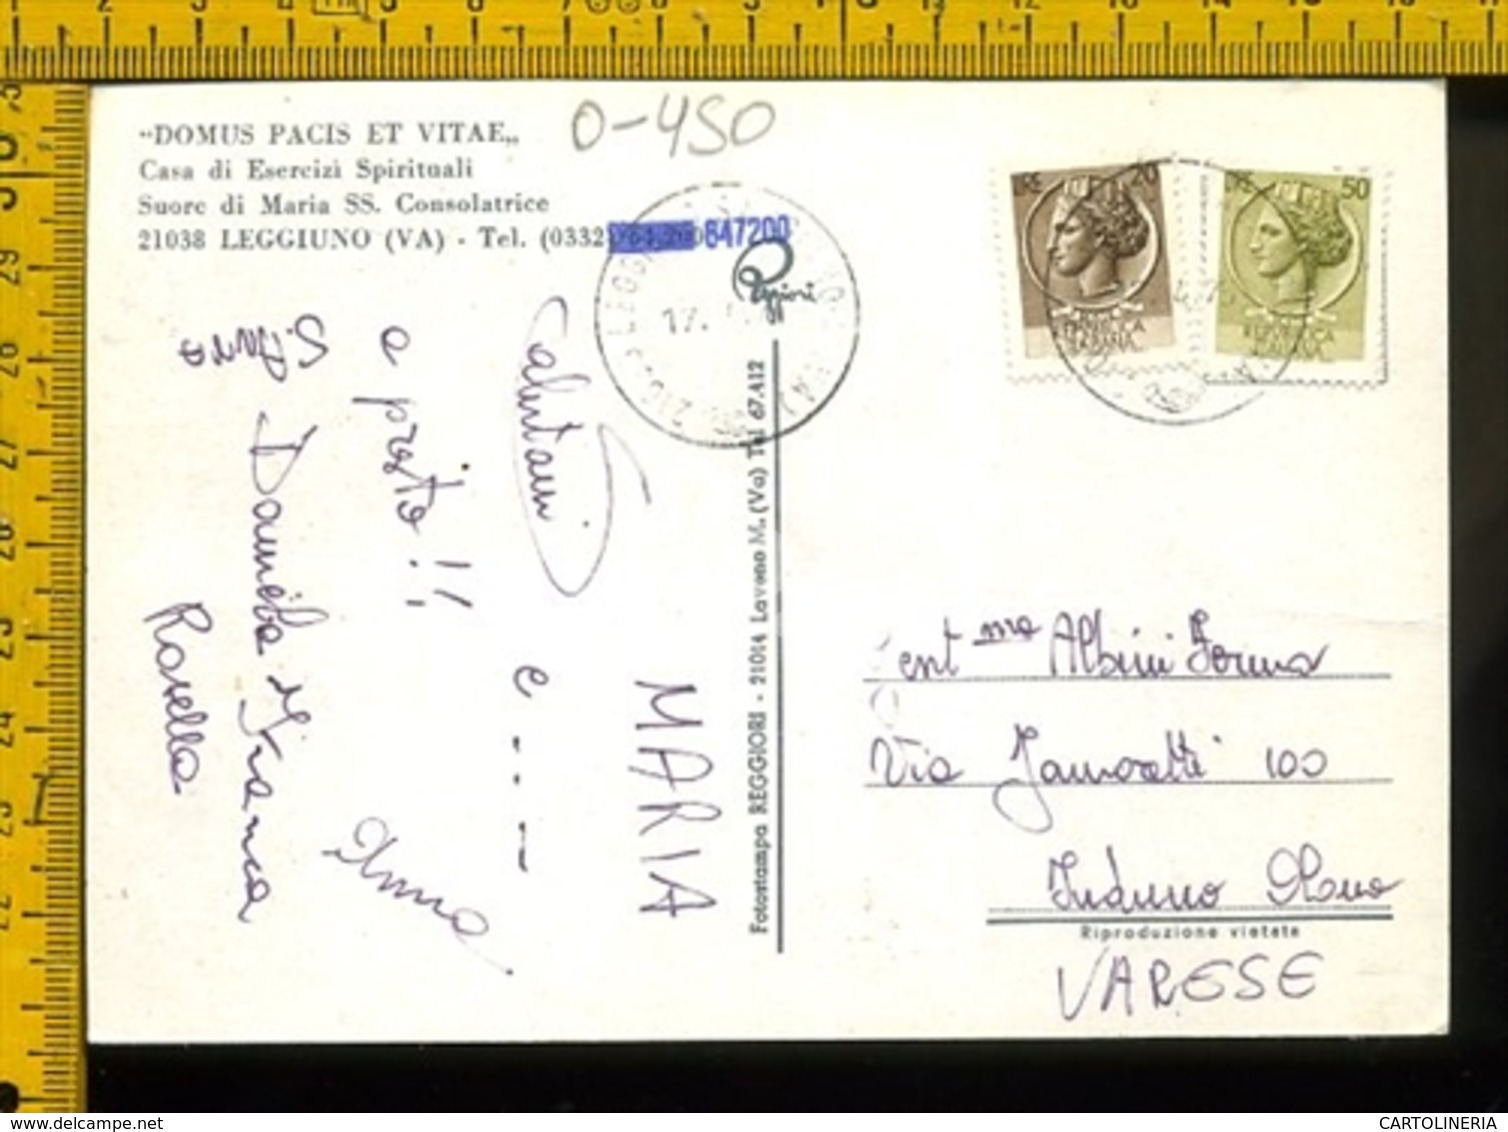 „DOMUS PACIS ET VITAE„
Casa di Esercizi Spirituali
Suore di Maria SS. Consolatrice
21038 LEGGIUNO (VA) - Tel. (0332) 647200
0-450
Reggiori
17.
LIRE 20
REPUBBLICA
ITALIANA
LIRE 50
REPUBBLICA
ITALIANA
Fotostampa REGGIORI - 21014 Laveno M. (Va) Tel 67.412
MARIA
Salutami
e . . . –
a presto !!
Anna
Daniela
Franca
Rosella
Gent ma Albini Irma
Via Jamoretti 100
Induno Olona
Riproduzione vietata
VARESE
CARTOLINERIA